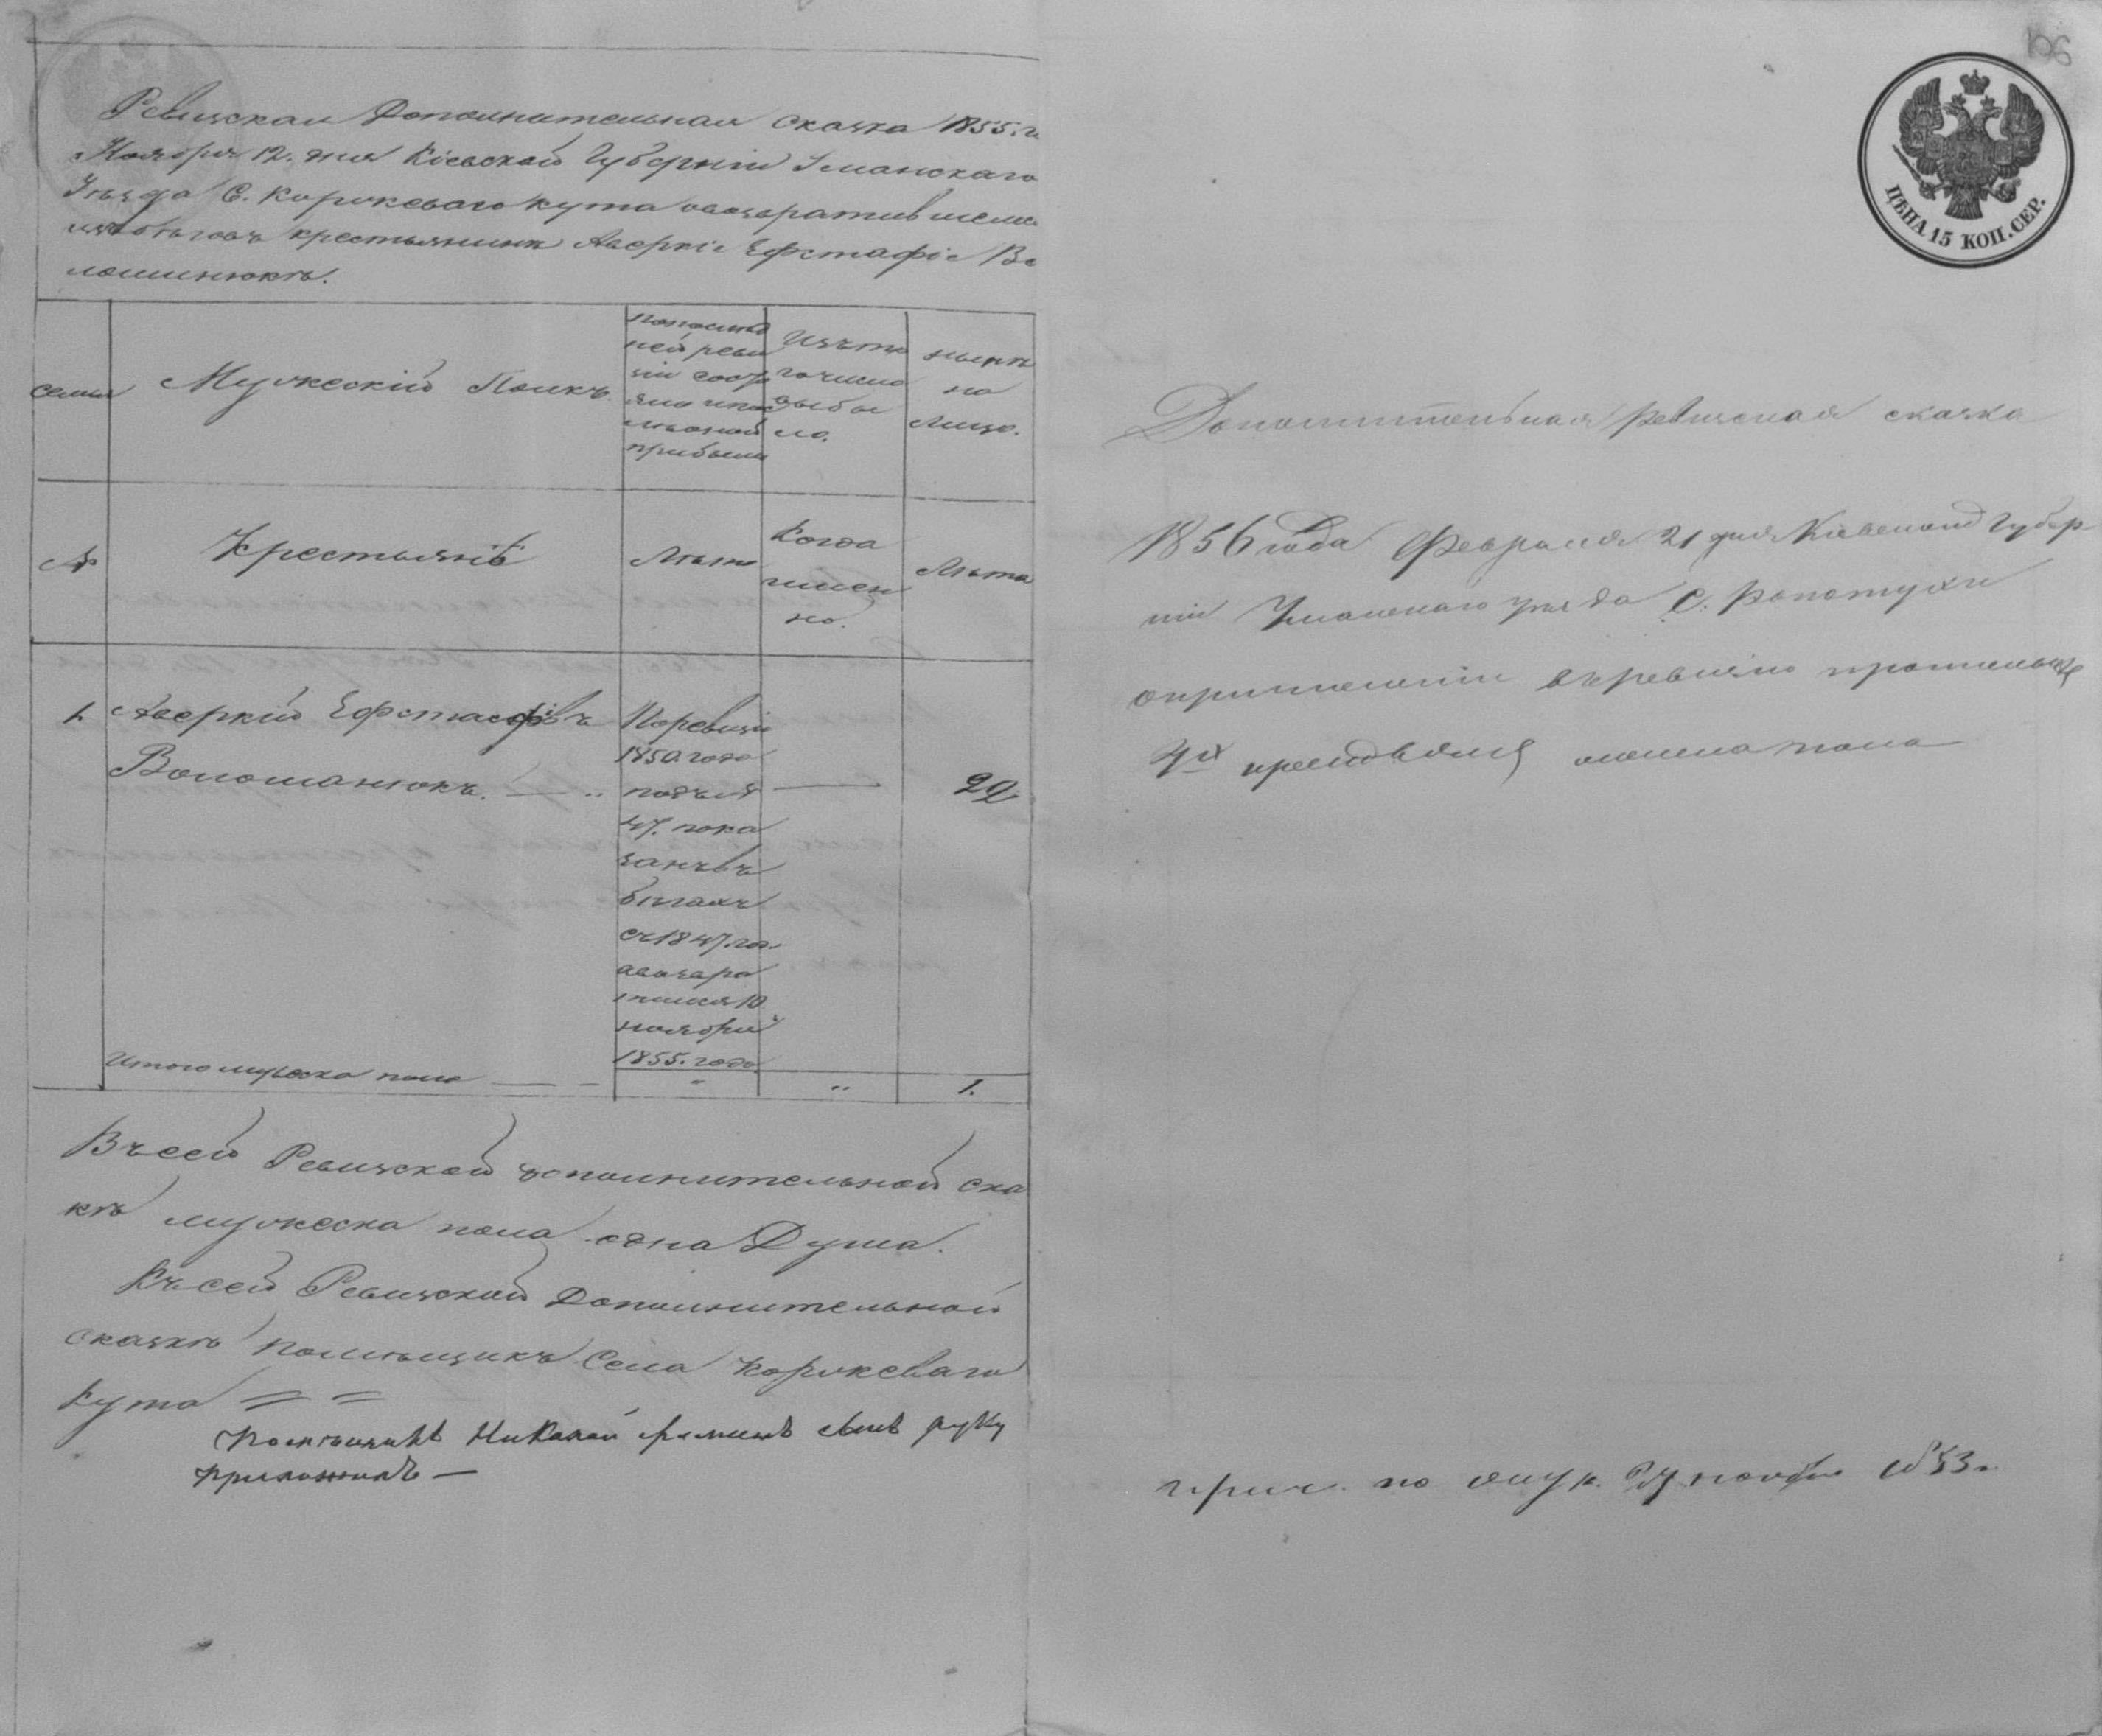 Ревизская Дополнительная сказка 1855. г
Ноября 12. дня Кіевской Губерніи Уманскаго
Уѣзда С. Коржеваго Кута овозвратившемся
изъ бѣговъ крестьянинѣ Аверкіе Ефстафіе Во
лошинюкѣ.
семьи
Мужескій Полкъ.
попослѣд
ней реви
зіи состо
яло ипос
лѣ оной
прибыли
Изъто
гочисла
выбы
ло.
нынѣ
на
Лицо.
№
Крестьянѣ
Лѣта
Когда
имен
но.
Лѣта
1. Аверкій Ефстафіевъ
Волошанюкъ.
Поревизіи
1850 года
подъ №
47. пока
занъ въ
бѣгахъ
съ 1847. го.
авозвра
тился 10
ноября
1855. года
22
Итого мужеска пола
1.
Въ сей Ревизской дополнительной ска
кѣ мужеска пола одна Душа.
Къ сей Ревизской Дополнительной
сказкѣ Помѣщикъ Села Коржеваго
Кута
Помѣщикъ Николай своеѣ руку
приложилъ —
106
ЦѢНА 15 КОП. СЕР.
Дополнительная ревизская сказка
1856 года Февраля 21 дня Кіевской Губер
ніи Уманскаго уѣзда С. Ропотухи
опричисленіи въ ревизію
4х
по 1853 г.